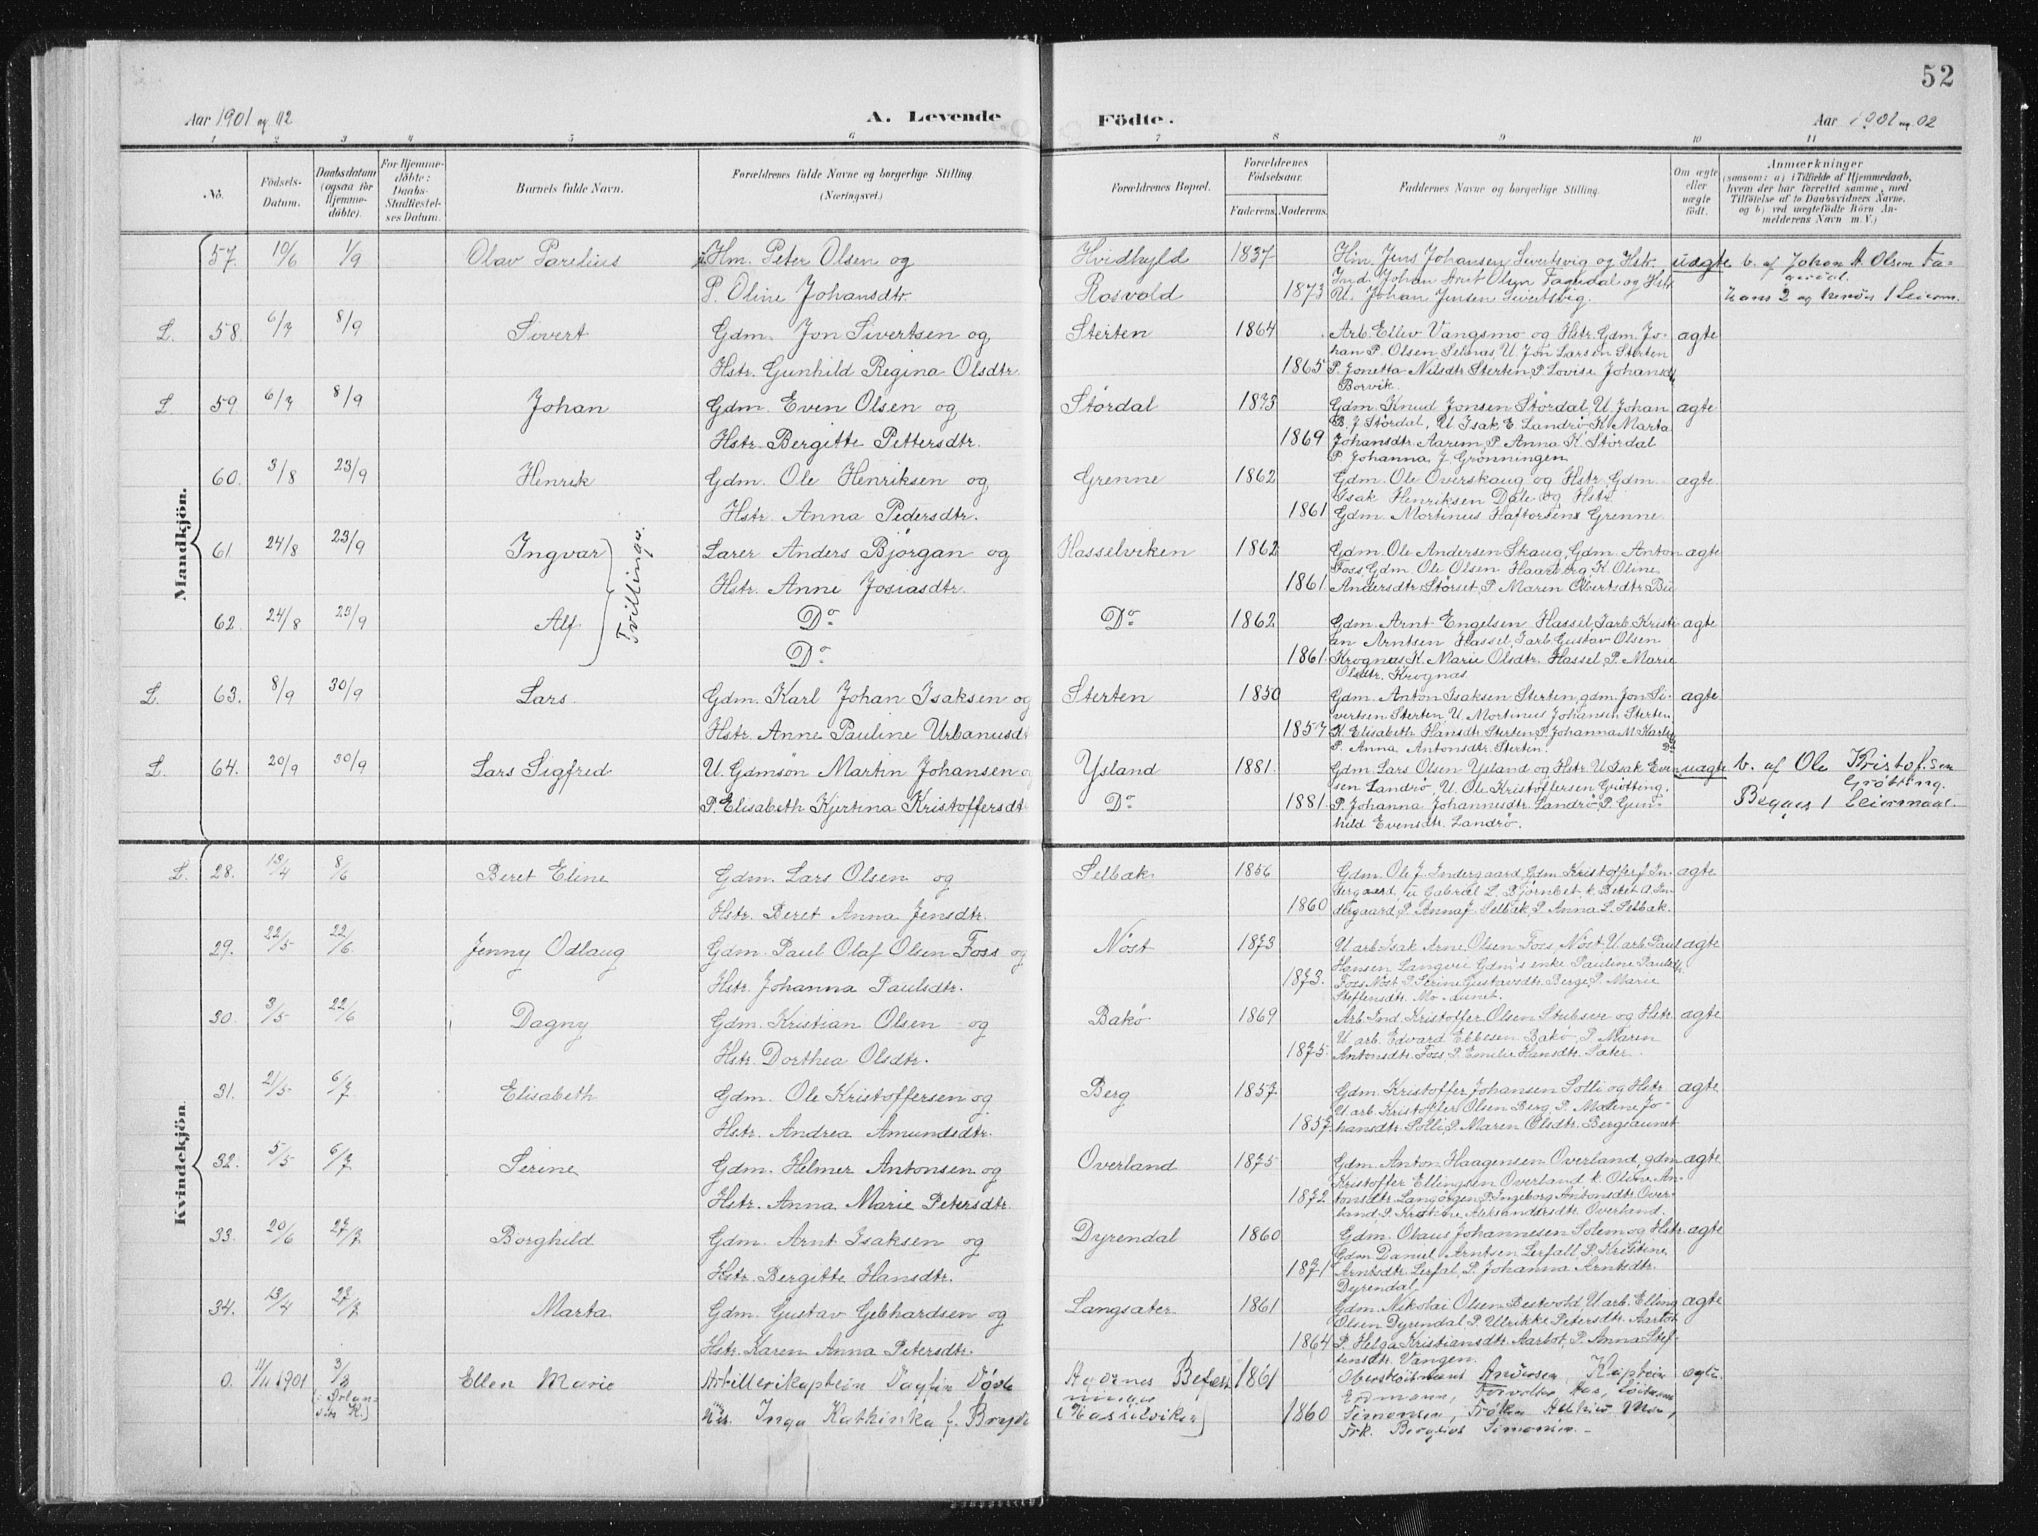 52
Aar 1901 og 02
A. Levende
Födte.
Aar 1901 og 02
1 2 3 4 5 6 7 8 9 10 11
No.
Födsels-Datum.
Daabsdatum (ogsaa for Hjemme-döbte).
For Hjemme-döbte: Daabs-Stadfæstel-ses Datum.
Barnets fulde Navn.
Forældrenes fulde Navne og borgerlige Stilling (Næringsvei.)
Forældrenes Bopæl.
Forældrenes Födselsaar.
Faderens. Moderens.
Faddernes Navne og borgerlige Stilling.
Om ægte eller uægte født.
Anmærkninger
(saasom: a) i Tilfælde af Hjemmedaab, hvem der har forrettet samme, med Tilföielse af to Daabsvidners Navne. og b) ved uægtefödte Börn An-melderens Navn m. V.)
Mandkjön.
57. 10/6 1/9 Olav Parelius Hm. Peter Olsen og Hvidhyld 1837 Hm. Jens Johansen Sivertsvig og Hstr. uægte b. af Johan A. Olsen Fa-
P. Oline Johansdtr Rosvold 1873 Ind. Johan Arnt Olsen Fagerdal og Hstr
U. Johan Jensen Sivertsvig.
L. 58. 6/7 8/9 Sivert Gdm. Jon Sivertsen og Sterten 1864 Arb. Ellev Vangsmo og Hstr. Gdm. Jo- ægte
Hstr. Gunhild Regina Olsdtr 1865 han P. Olsen Selnæs, U. Jon Larsen Sterten
P. Jonetta Nilsdtr Sterten, P. Lovise Johansdtr
Borvik.
L. 59. 6/7 8/9 Johan Gdm. Even Olsen og Størdal 1873 Gdm. Knud Jonsen Størdal, U. Johan ægte
Hstr. Bergitte Pettersdtr. 1869 E. J Størdal, U Isak E. Landrø K. Marta
Johansdtr. Aarem, P. Anna K. Størdal
P Johanna J. Grønningen
60. 3/8 23/9 Henrik Gdm. Ole Henriksen og Grenne 1862 Gdm. Ole Overskaug og Hstr. Gdm ægte
Hstr. Anna Pedersdtr. 1861 Isak Henriksen Dale og Hstr.
Gdm. Mortinus Haftorsens Grenne
61 24/8 23/9 Ingvar Lærer Anders Bjørgan og Hasselviken 1862 Gdm. Ole Andersen Skaug, Gdm. Anton ægte
Hstr. Anne Josiasdtr. 1861 Foss, Gdm. Ole Olsen Haarberg K. Oline
Andersdtr Størset, P. Maren Evertsdtr Bu
Tvillinge.
62. 24/8 23/9 Alf Do Do 1862 Gdm. Arnt Engelsen Hassel, Iarb. Kristi- ægte
Do 1861 an Arntsen Hassel, Iarb. Gustav Olsen
Krognæs K. Marie Olsdtr. Hassel, P. Marie
Olsdtr. Krognæs
L. 63. 8/9 30/9 Lars. Gdm. Karl Johan Isaksen og Sterten 1850 Gdm. Anton Isaksen Sterten, gdm. Jon Si- ægte
Hstr. Anne Pauline Urbanusdt 1857 vertsen Sterten, U. Mortinus Johansen Sterten
K. Elisabeth Hansdtr Sterten, P. Johanna M. Karls
P. Anna Antonsdtr. Sterten.
L. 64. 20/9 30/9 Lars Sigfred U. Gdmsøn Martin Johansen og Ysland 1881. Gdm. Lars Olsen Ysland og Hstr. U Isak Even- uægte b. af Ole Kristofsen
P. Elisabeth Kjertina Kristoffersdt Do 1881. sen Landrø, U. Ole Kristoffersen Grøtting. Grøtting.
P. Johanna Johannesdtr. Landrø P. Gun- Begges 1 Leiermaal.
hild Evensdtr. Landrø.
Kvindekjön.
L. 28. 13/4 8/6 Beret Eline Gdm. Lars Olsen og Selbæk 1856 Gdm. Ole J. Indergaard, Gdm Kristoffer J In- ægte
Hstr. Beret Anna Jensdtr. 1860 dergaard, U Gabriel L. Bjørnbet K. Beret O. In-
dergaard, P. Anna J. Selbæk, P. Anna L. Selbæk.
29. 22/5 22/6 Jenny Odlaug Gdm. Paul Olaf Olsen Foss og Nøst 1873 U arb. Isak Arne Olsen Foss Nøst. U arb. Paul ægte
Hstr. Johanna Paulsdtr. 1873. Hansen Langvei Gdm's enke Pauline Paulsdtr.
Foss Nøst P. Serine Gustavsdtr. Berge, P. Marie
Steffensdtr. Mo-aunet.
30. 3/5 22/6 Dagny Gdm. Kristian Olsen og Bakø 1869 Arb. Ind. Kristoffer Olsen Stubsve og Hstr. ægte
Hstr. Dorthea Olsdtr. 1875. U arb. Edvard Ebbesen Bakø, P. Maren
Antonsdtr. Foss P. Emilie Hansdtr. Sæter
31. 21/5 6/7 Elisabeth Gdm. Ole Kristoffersen og Berg 1857 Gdm. Kristoffer Johansen Solli og Hstr ægte
Hstr. Andrea Amundsdtr. 1857. U arb. Kristoffer Olsen Berg P. Malene Jo-
hansdtr Solli, P. Maren Olsdtr. Bergsaunet
32. 5/5 6/7 Serine Gdm. Helmer Antonsen og Overland 1875 Gdm. Anton Haagensen Overland, gdm ægte
Hstr. Anna Marie Petersdtr. 1872. Kristoffer Ellingsen Overland K. Oline An-
tonsdtr. Langørgen, P. Ingeborg Antonsdtr. Over-
land, P. Kristine Aleksandersdtr Overland.
33. 20/6 27/7 Borghild Gdm. Arnt Isaksen og Dyrendal 1860 Gdm. Olaus Johannesen Solem og Hstr. ægte
Hstr. Bergitte Hansdtr. 1871 Gdm Daniel Arntsen Lerfall, P. Kristine
Arntsdtr. Lerfal, P. Johanna Arntsdtr.
Dyrendal
34. 13/4 27/7 Marta Gdm. Gustav Gebhardsen og Langsæter 1861 Gdm. Nikolai Olsen Bestvold, U arb. Elling ægte
Hstr. Karen Anna Petersdtr. 1864 Olsen Dyrendal P. Ulrikke Petersdtr. Aarbot
P. Helga Kristiansdtr. Aarbot, P. Anna Stef-
fensdtr. Vangen.
0. 11/11 1901 3/3 Ellen Marie Artillerikaptein Dagfin Døvle Agdenes Befæst- 1861 Oberstløitnant Andersen, Kaptein ægte
Inga Katkinka f. Bryde ninger (Hasselviken) 1860 Erdmann, Forvalter Aas, Løitnant
Simonsen, Frøken
Frk. Simonsen.